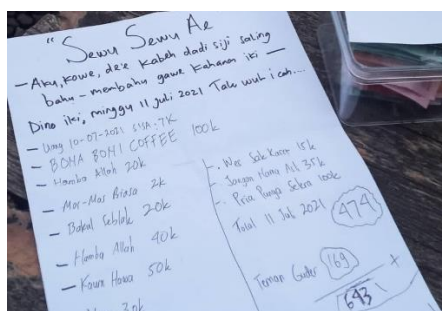 "Sewu Sewu Ae
- Aku, kowe, de'e kabeh dadi siji saling
bahu - membahu gawe kahanan iki -
Dino iki, minggu 11 Juli 2021 Tak wuh i cah...
- Uang 10-07-2021 SISA. 7K
- BOMA BOMI COFFEE 100k
- Hamba Allah 20k
- Mas-Mas Biasa 2k
- Bakul Seblak 20k
- Hamba Allah 40k
- Kaum Hawa 50k
30k
- Wes Sak 15k
- Jangan Mana Ail 35k
- Pria Punya Selera 100k
Total 11 Juli 2021 474
Teman 169
+
643